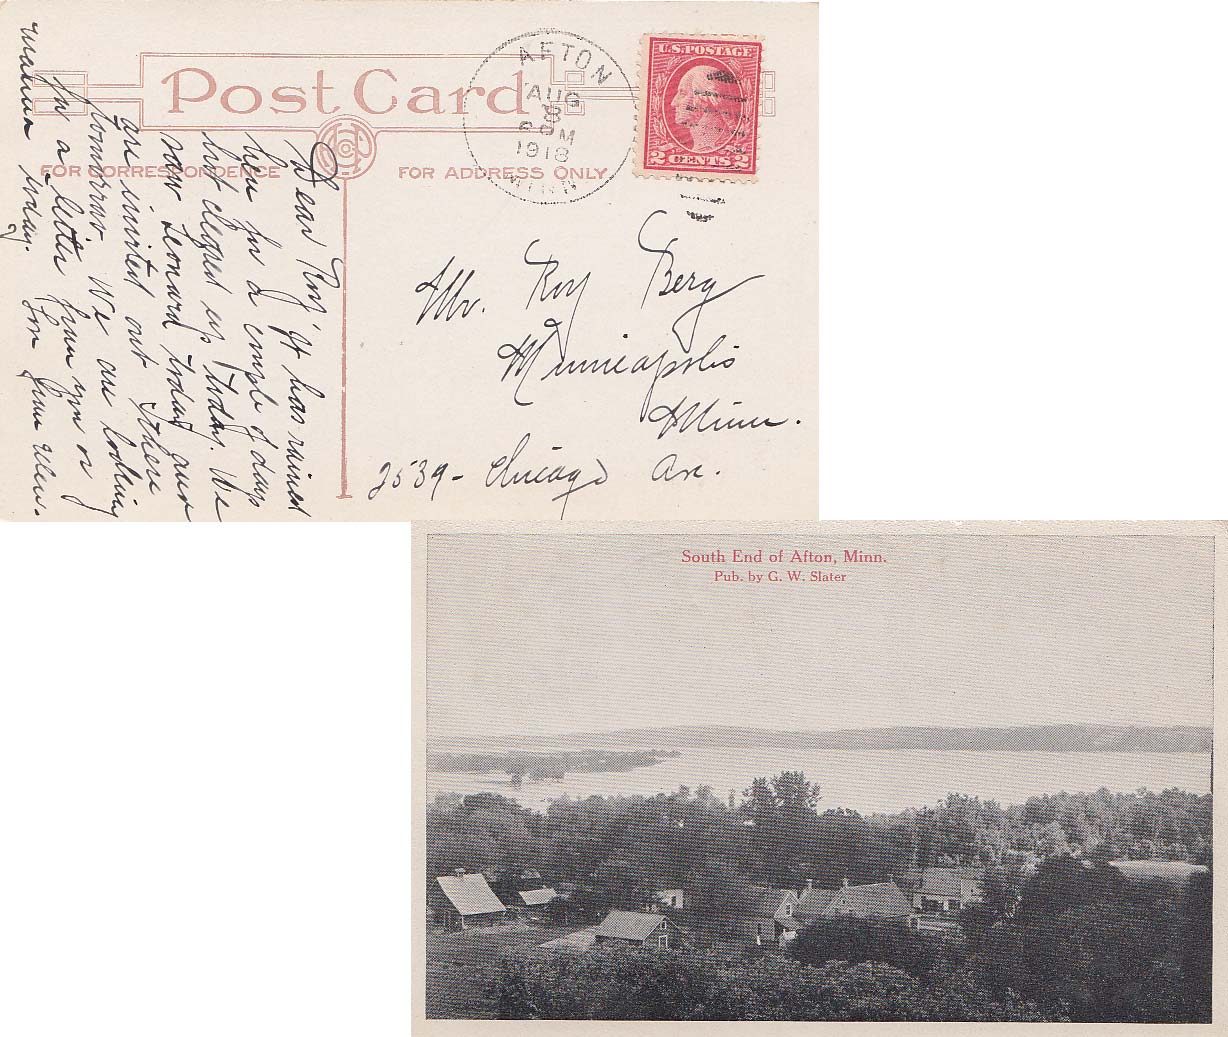 Post Card
AFTON
AUG
8
2 PM
1918
MINN
U.S. POSTAGE
2 CENTS 2
FOR CORRESPONDENCE
FOR ADDRESS ONLY
Dear Roy' It has rained
here for a couple of days
but cleared up today. We
saw Leonard today and
are invited out there
tomorrow We are looking
for a letter from you or
today.
Mr. Roy Berg
Minneapolis
Minn.
2539- Chicago Ave.
South End of Afton, Minn.
Pub. by G. W. Slater